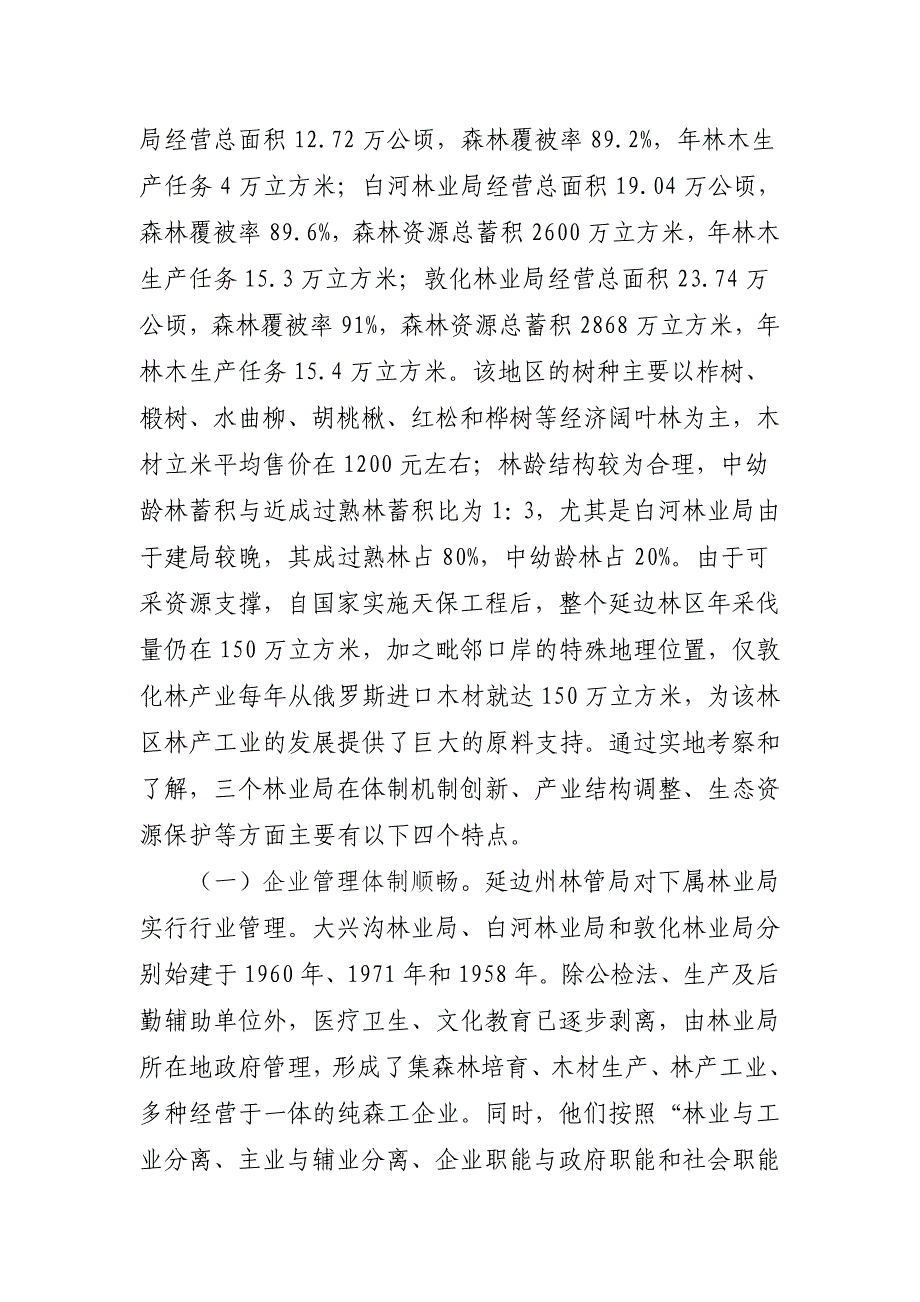 局经营总面积 12.72 万公顷，森林覆被率 89.2%，年林木生
产任务 4 万立方米；白河林业局经营总面积 19.04 万公顷，
森林覆被率 89.6%，森林资源总蓄积 2600 万立方米，年林木
生产任务 15.3 万立方米；敦化林业局经营总面积 23.74 万
公顷，森林覆被率 91%，森林资源总蓄积 2868 万立方米，年
林木生产任务 15.4 万立方米。该地区的树种主要以柞树、
椴树、水曲柳、胡桃楸、红松和桦树等经济阔叶林为主，木
材立米平均售价在 1200 元左右；林龄结构较为合理，中幼
龄林蓄积与近成过熟林蓄积比为 1：3，尤其是白河林业局由
于建局较晚，其成过熟林占 80%，中幼龄林占 20%。由于可
采资源支撑，自国家实施天保工程后，整个延边林区年采伐
量仍在 150 万立方米，加之毗邻口岸的特殊地理位置，仅敦
化林产业每年从俄罗斯进口木材就达 150 万立方米，为该林
区林产工业的发展提供了巨大的原料支持。通过实地考察和
了解，三个林业局在体制机制创新、产业结构调整、生态资
源保护等方面主要有以下四个特点。
（一）企业管理体制顺畅。延边州林管局对下属林业局
实行行业管理。大兴沟林业局、白河林业局和敦化林业局分
别始建于 1960 年、1971 年和 1958 年。除公检法、生产及后
勤辅助单位外，医疗卫生、文化教育已逐步剥离，由林业局
所在地政府管理，形成了集森林培育、木材生产、林产工业、
多种经营于一体的纯森工企业。同时，他们按照“林业与工
业分离、主业与辅业分离、企业职能与政府职能和社会职能